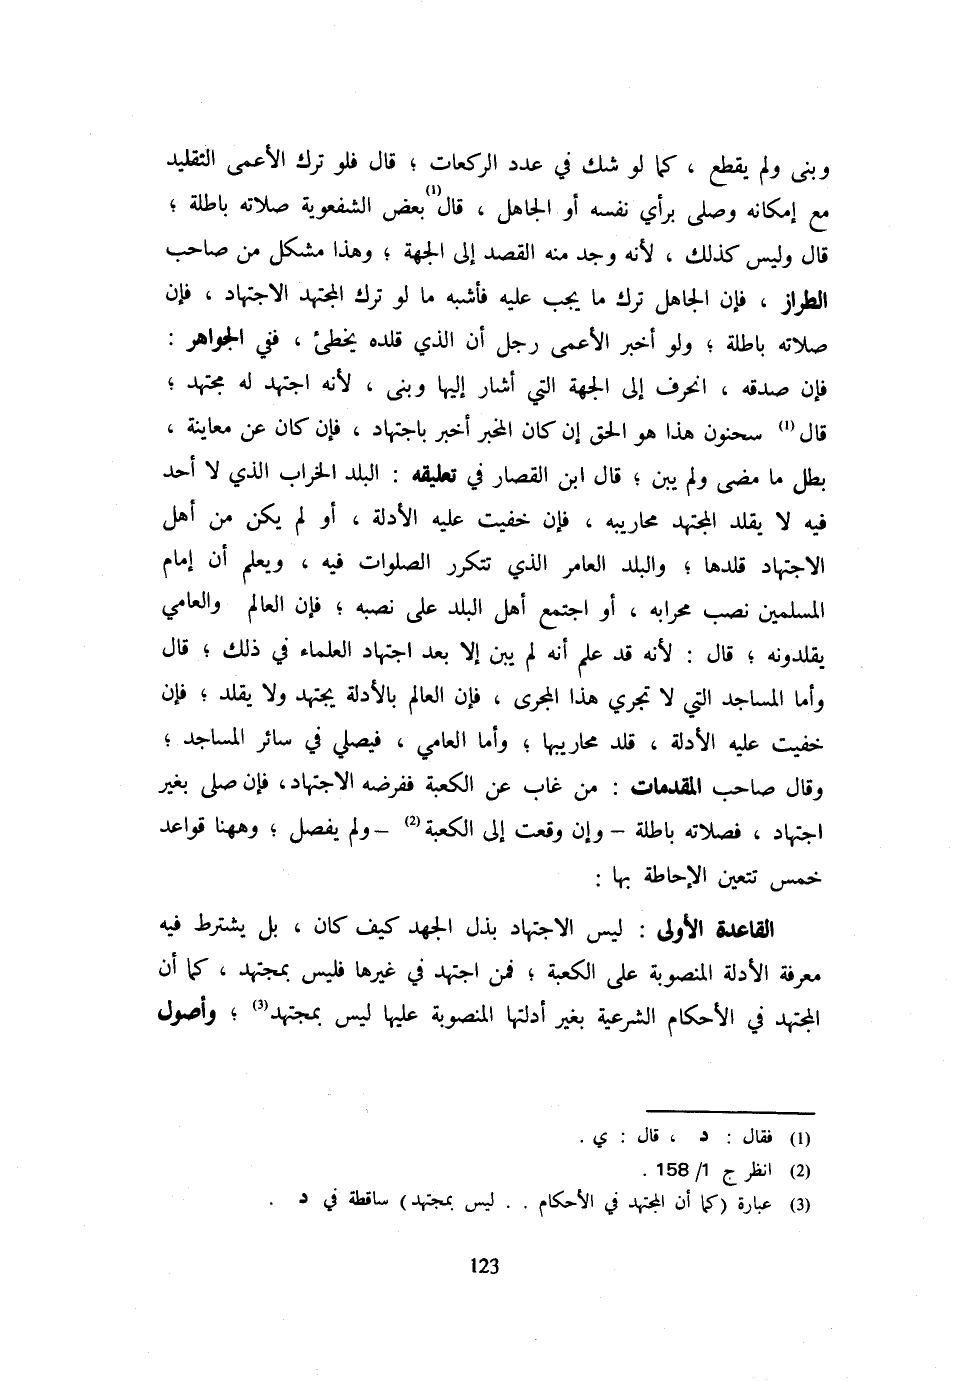 وبنى ولم يقطع ، كما لو شك في عدد الركعات ؛ قال فلو ترك الأعمى التقليد
مع إمكانه وصلى برأي نفسه أو الجاهل ، قال(1) بعض الشفعوية صلاته باطلة ؛
قال وليس كذلك ، لأنه وجد منه القصد إلى الجهة ؛ وهذا مشكل من صاحب
الطراز ، فإن الجاهل ترك ما يجب عليه فأشبه ما لو ترك المجتهد الاجتهاد ، فإن
صلاته باطلة ؛ ولو أخبر الأعمى رجل أن الذي قلده يخطئ ، ففي الجواهر :
فإن صدقه ، انحرف إلى الجهة التي أشار إليها وبنى ، لأنه اجتهد له مجتهد ؛
قال(1) سحنون هذا هو الحق إن كان المخبر أخبر باجتهاد ، فإن كان عن معاينة ،
بطل ما مضى ولم يبن ؛ قال ابن القصار في تعليقه : البلد الخراب الذي لا أحد
فيه لا يقلد المجتهد محاريبه ، فإن خفيت عليه الأدلة ، أو لم يكن من أهل
الاجتهاد قلدها ؛ والبلد العامر الذي تتكرر الصلوات فيه ، ويعلم أن إمام
المسلمين نصب محرابه ، أو اجتمع أهل البلد على نصبه ؛ فإن العالم والعامي
يقلدونه ؛ قال : لأنه قد علم أنه لم يبن إلا بعد اجتهاد العلماء في ذلك ؛ قال
وأما المساجد التي لا تجري هذا المجرى ، فإن العالم بالأدلة يجتهد ولا يقلد ؛ فإن
خفيت عليه الأدلة ، قلد محاريبها ؛ وأما العامي ، فيصلي في سائر المساجد ؛
وقال صاحب المقدمات : من غاب عن الكعبة ففرضه الاجتهاد، فإن صلى بغير
اجتهاد ، فصلاته باطلة – وإن وقعت إلى الكعبة(2) – ولم يفصل ؛ وههنا قواعد
خمس تتعين الإحاطة بها :
القاعدة الأولى : ليس الاجتهاد بذل الجهد كيف كان ، بل يشترط فيه
معرفة الأدلة المنصوبة على الكعبة ؛ فمن اجتهد في غيرها فليس بمجتهد ، كما أن
المجتهد في الأحكام الشرعية بغير أدلتها المنصوبة عليها ليس بمجتهد(3) ؛ وأصول
(1) فقال : د ، قال : ي .
(2) انظر ج 1/ 158 .
(3) عبارة (كما أن المجتهد في الأحكام . . ليس بمجتهد) ساقطة في د .
123